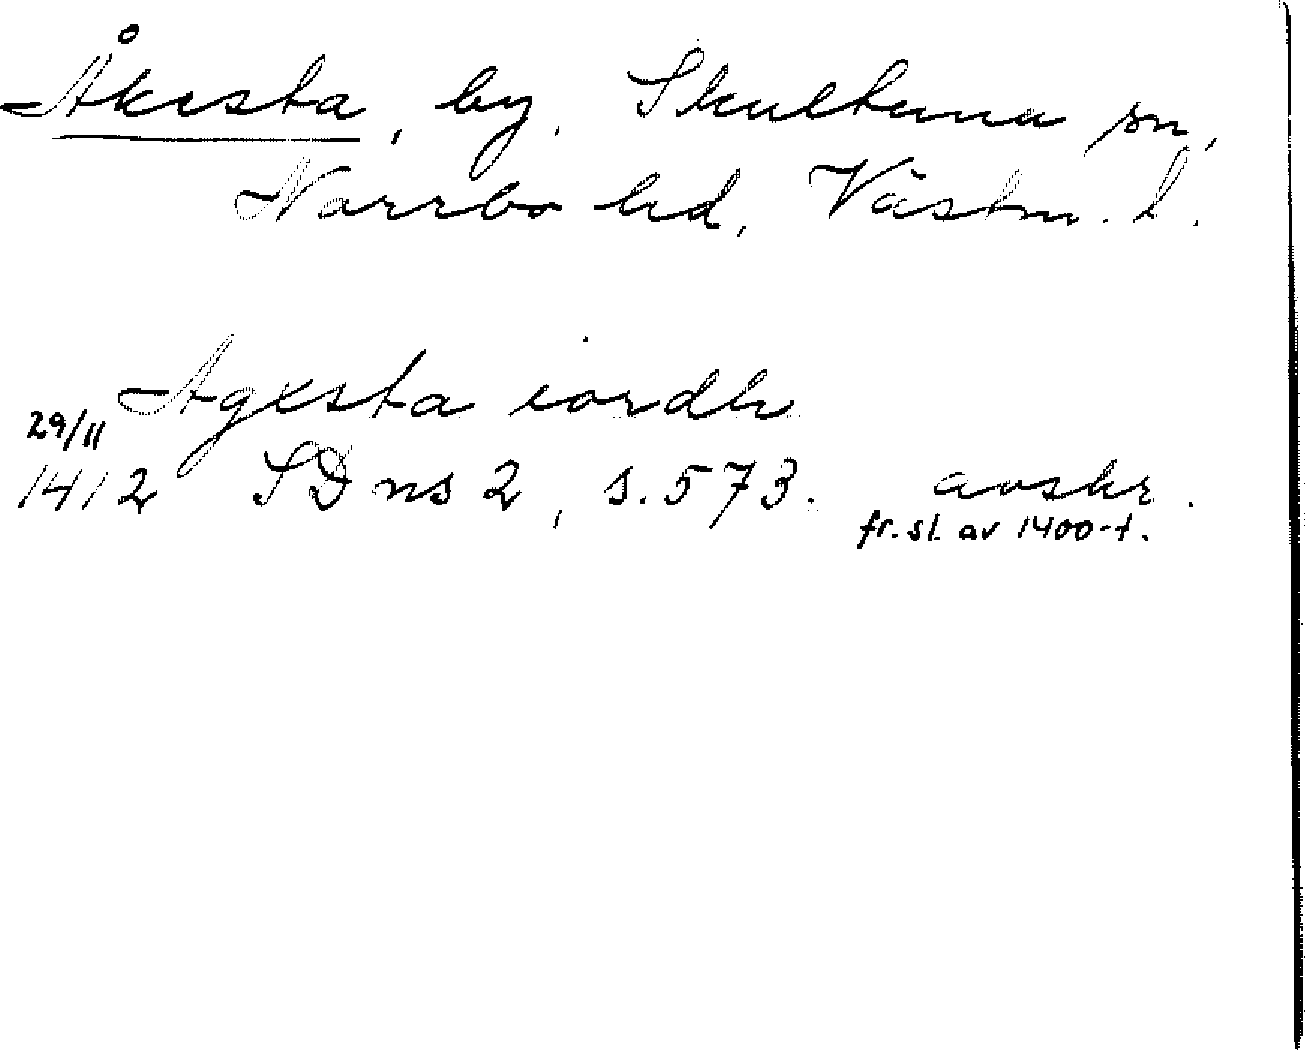 Åkesta, by, Skultuna sn,
Norrbo hd, Västm. l.
Agesta iordh
29/11
1412 SD ns 2, s. 573. avskr.
fr. sl. av 1400-t.